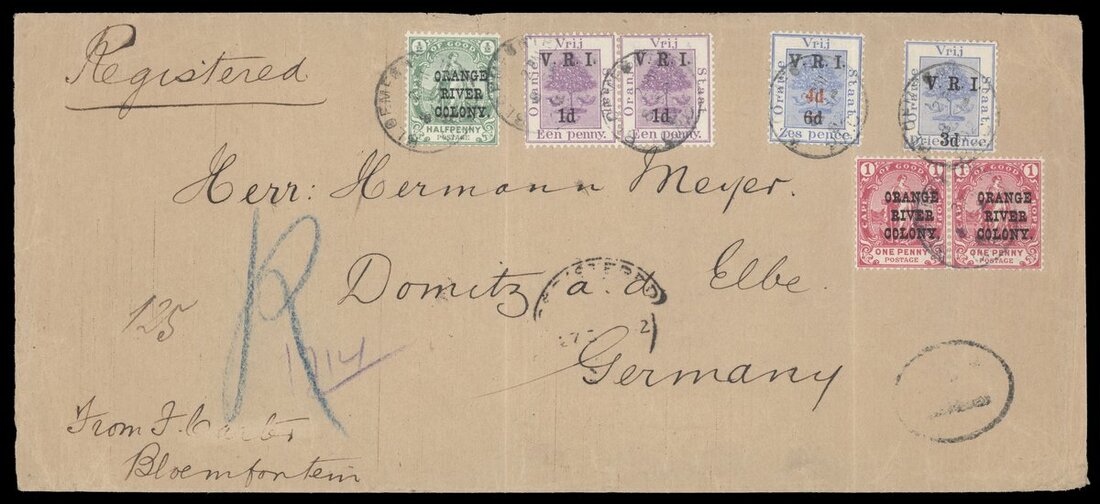 Registered
½ OF GOOD ½
ORANGE
RIVER
COLONY.
HALFPENNY
POSTAGE
Vrij
V. R. I.
Oranje Staat.
1d
Een penny.
Vrij
V. R. I.
Oranje Staat.
1d
Een penny.
Vrij
V. R. I.
Oranje Staat.
4d
6d
Zes pence.
Vrij
V. R. I.
Staat.
3d
1 OF GOOD 1
CAPE HOPE
ORANGE
RIVER
COLONY.
ONE PENNY
POSTAGE
1 OF GOOD 1
CAPE HOPE
ORANGE
RIVER
COLONY.
ONE PENNY
POSTAGE
Herr: Hermann Meyer.
Domitz a. d. Elbe.
Germany
R
125
1714
From F.
Bloemfontein